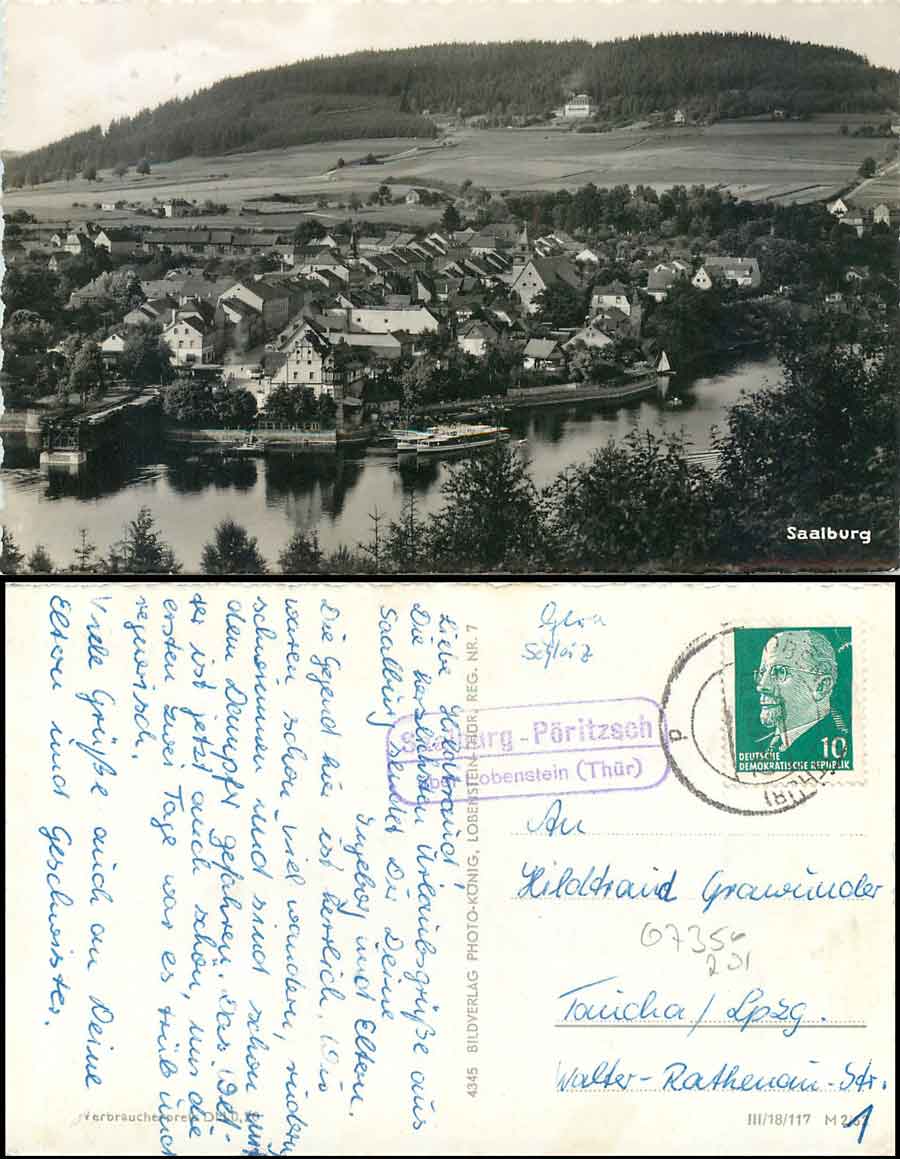 Saalburg
Gera
Schleiz
Saalburg-Pöritzsch
über Lobenstein (Thür)
DEUTSCHE
DEMOKRATISCHE REPUBLIK
10
An
Hildtraud Grawunder
07356
201
Taucha / Lpzg.
Walter-Rathenau-Str.
1
Liebe Hildtraud,
Die herzlichsten Urlaubsgrüße aus
Saalburg sendet Dir Deine
Ingeborg und Eltern.
Die Gegend hie ist herrlich. Wir
waren schon viel wandern, rudern
schwimmen und sind schon mit
dem Dampf gefahren. Das Wet-
ter ist jetzt auch schön, nur die
ersten zwei Tage war es trüb und
regnerisch.
Viele Grüße auch an Deine
Eltern und Geschwister.
4345 BILDVERLAG PHOTO-KÖNIG, LOBENSTEIN-THÜR. REG. NR. 7
Verbraucherpreis DM 0,20
III/18/117 M 2/62